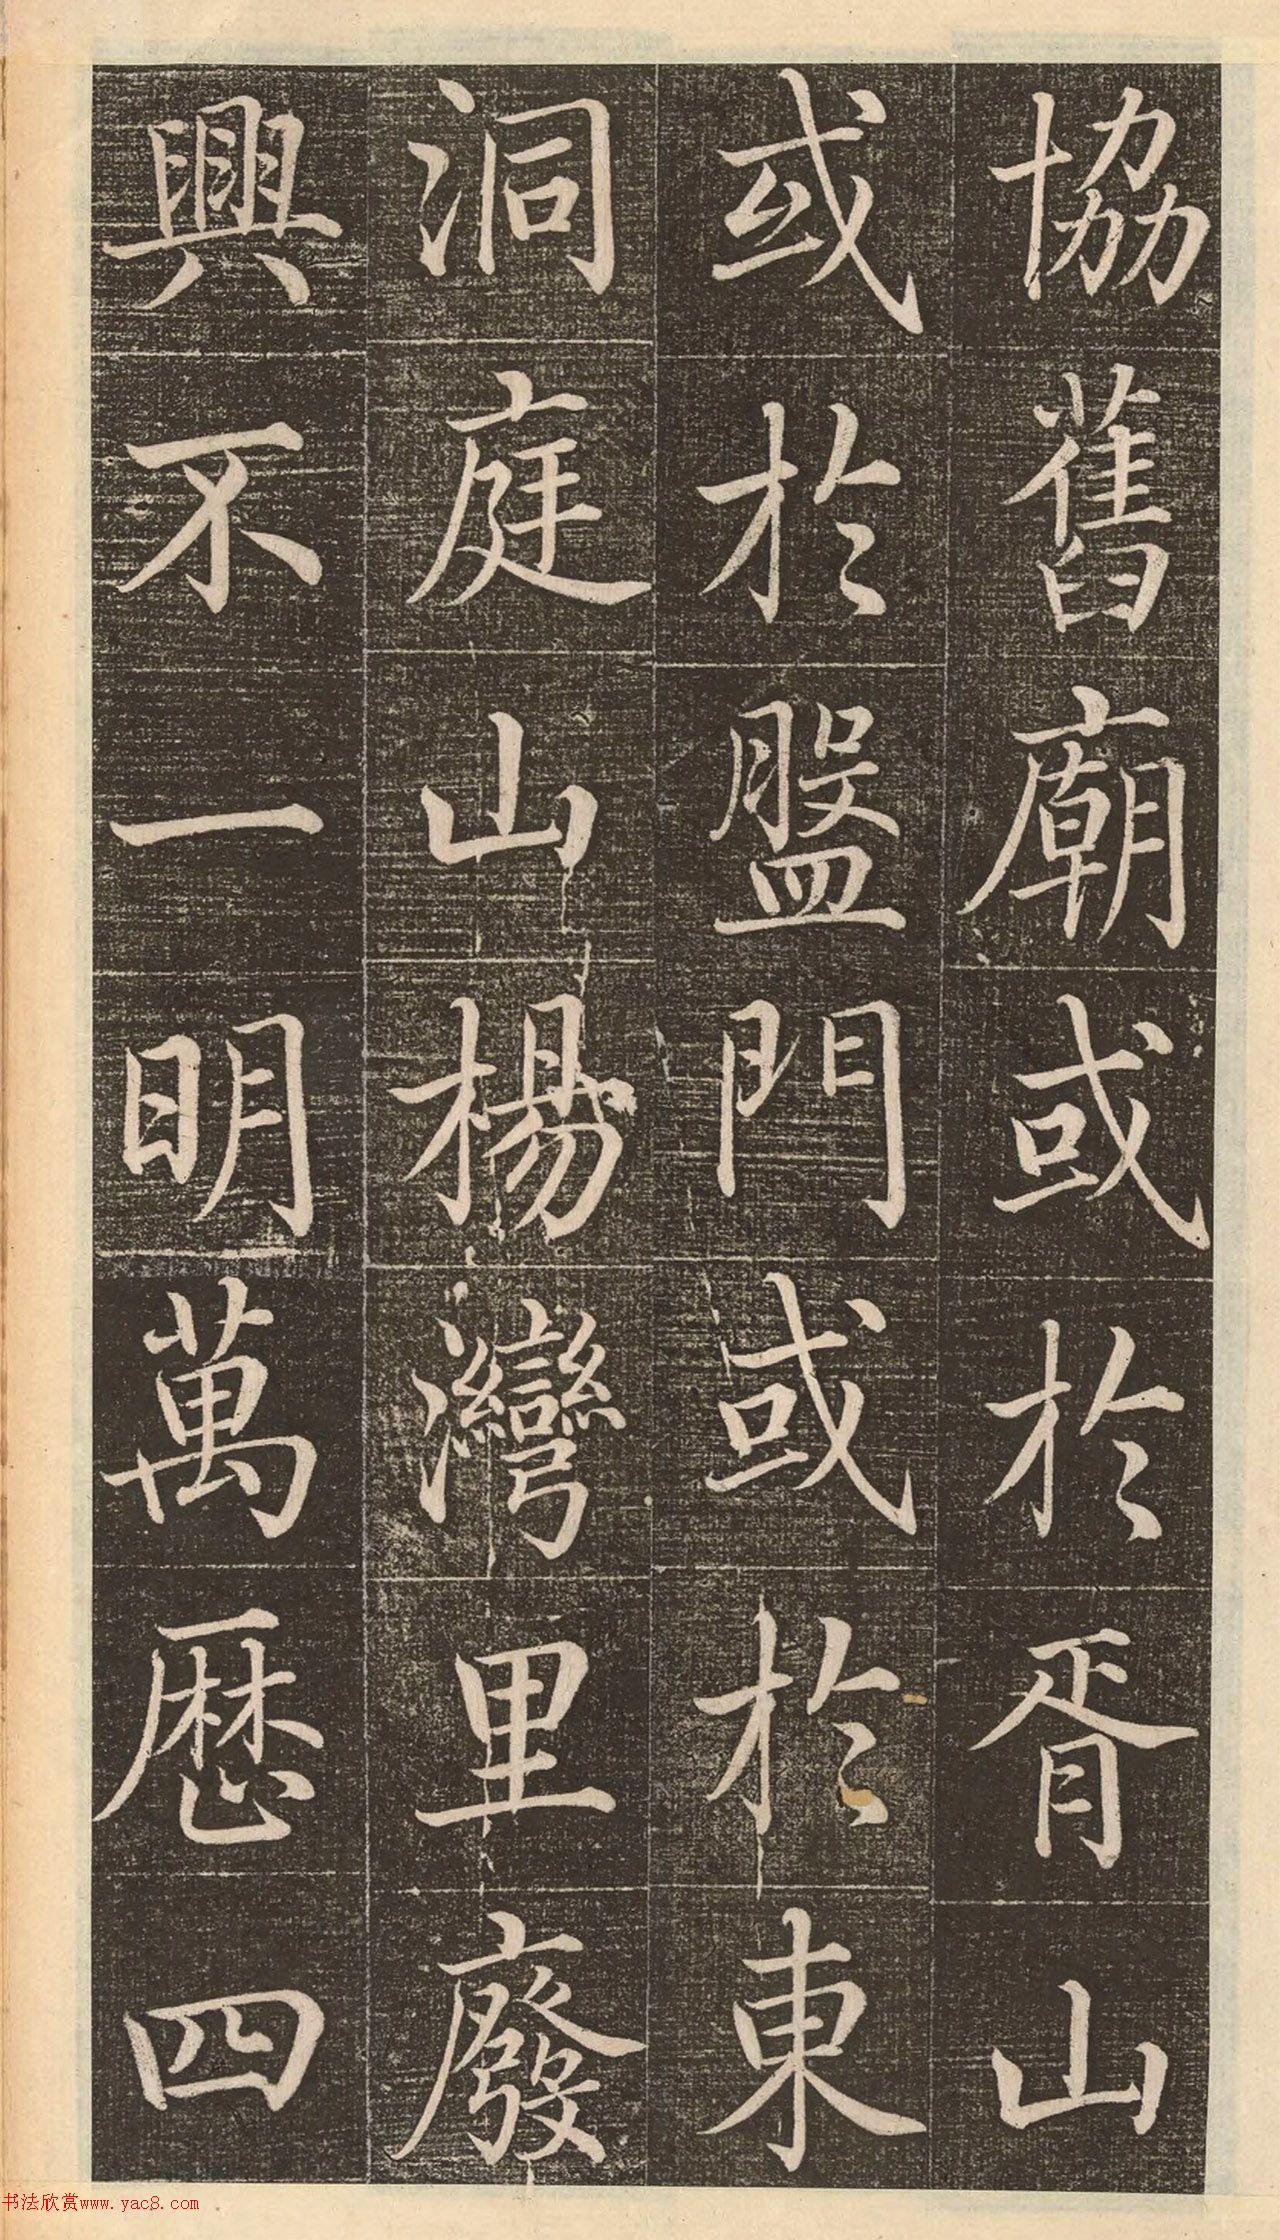 協舊廟或於胥山
或於盤門或於東
洞庭山楊灣里廢
興不一明萬歷四
书法欣赏www.yac8.com